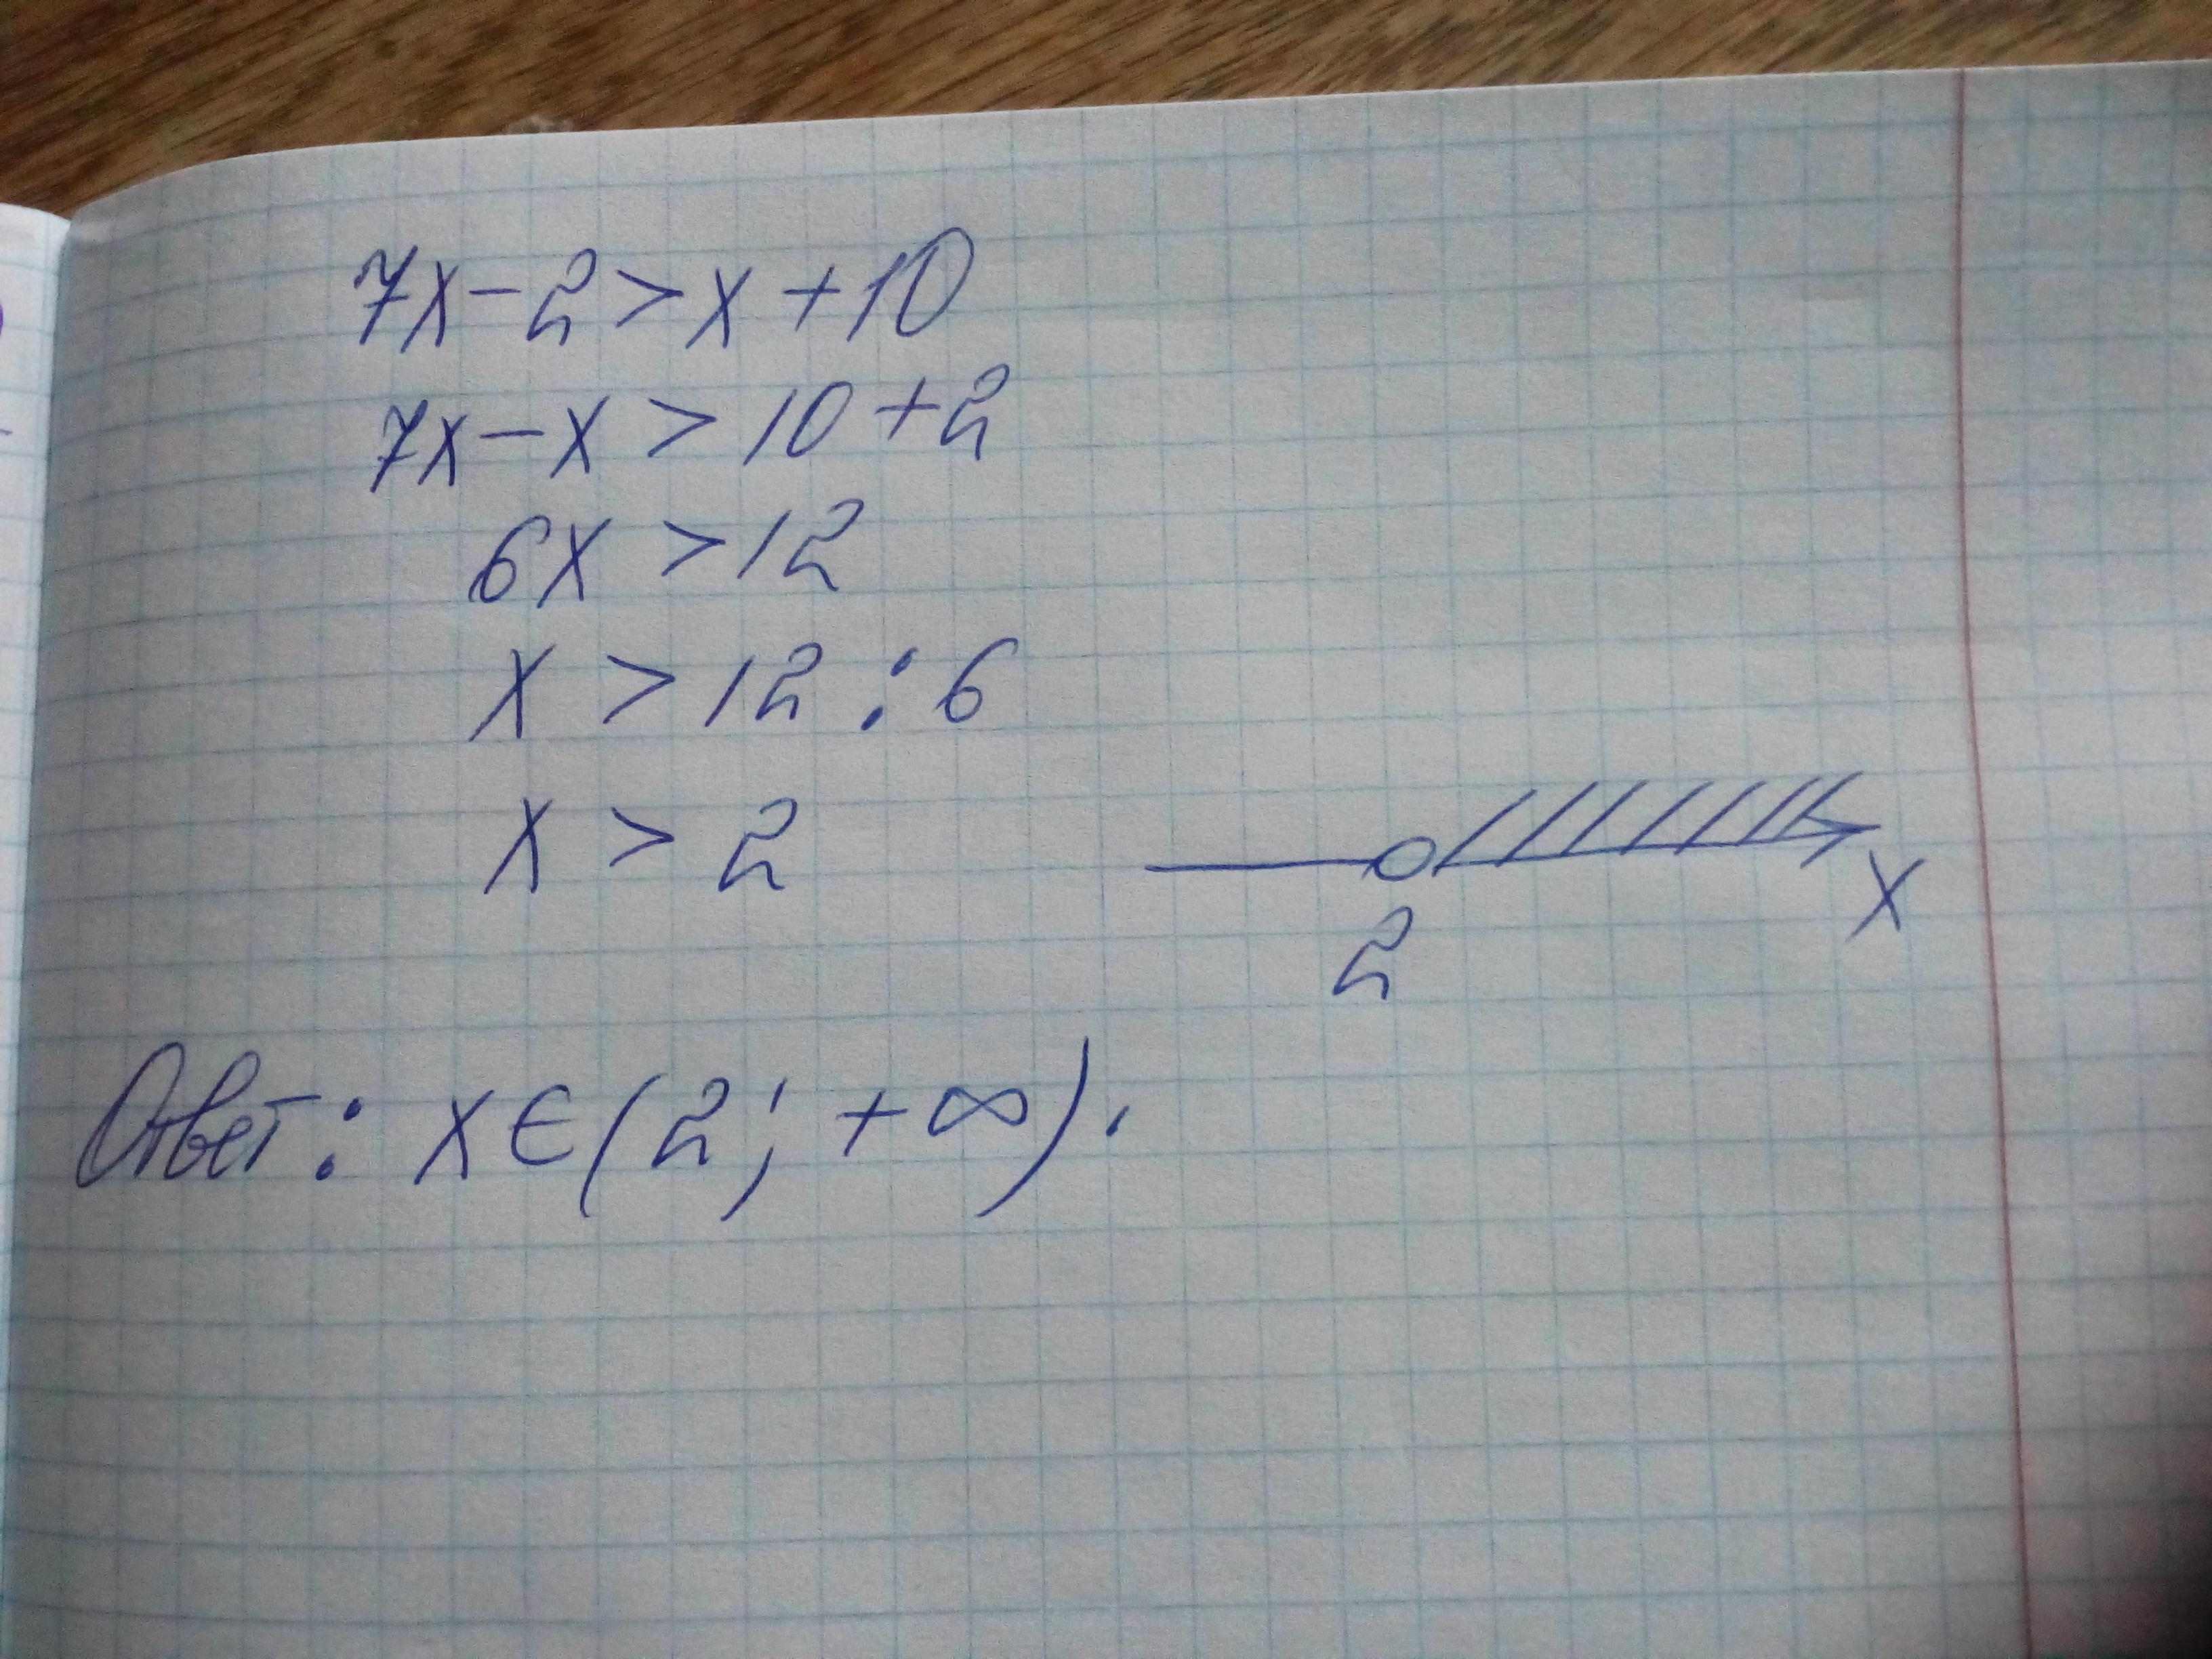 7x-2>x+10
7x-x>10+2
6x>12
x>12:6
x>2
2
x
Ответ: x∈(2;+∞).